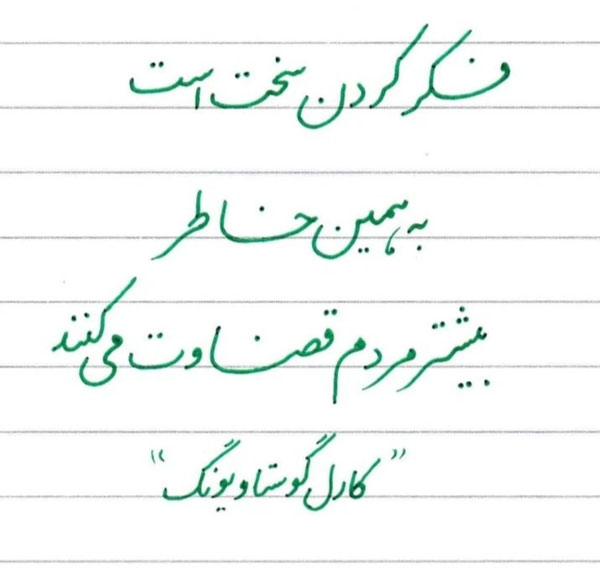 فکر کردن سخت است
به همین خاطر
بیشتر مردم قضاوت می کنند
"کارل گوستاو یونگ"